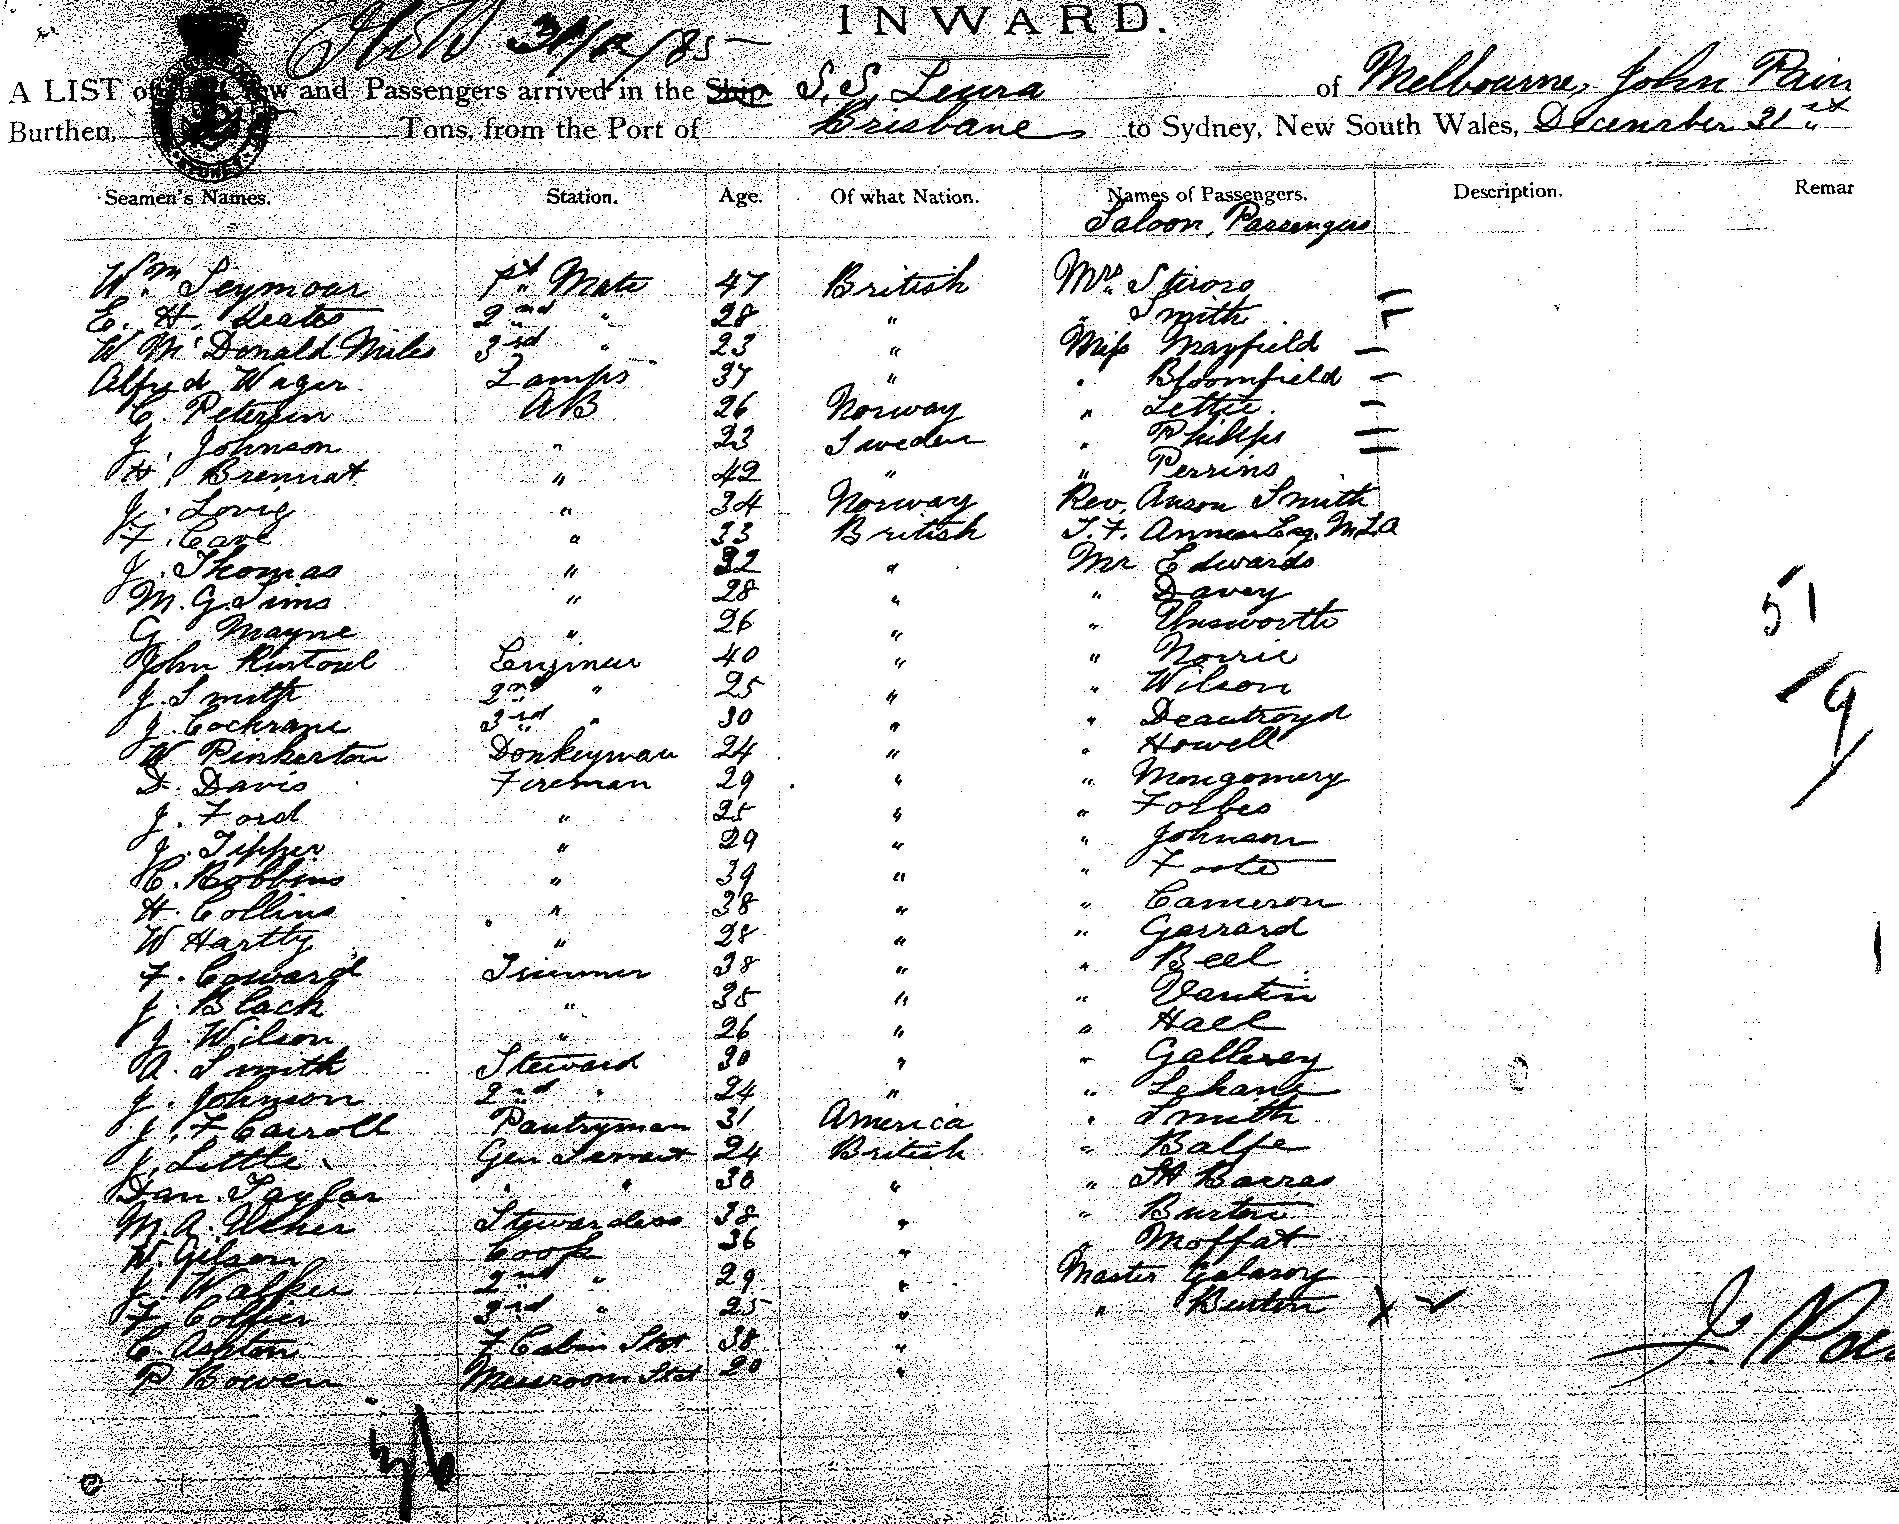 INWARD.
31/12/85
A LIST of the Crew and Passengers arrived in the Ship S.S. Leura of Melbourne, John Pain
Burthen, Tons, from the Port of Brisbane to Sydney, New South Wales, December 31st
Seamen's Names. Station. Age. Of what Nation. Names of Passengers. Description. Remar
Saloon Passengers
Wm Seymour 1st Mate 47 British Mrs
E. H. 2nd " 28 " " Smith
W McDonald Miles 3rd " 23 " Miss Mayfield
Alfred Wager Lamps 37 " " Bloomfield
C. Petersen AB 26 Norway " Lettie
J. Johnson " 23 Sweden " Phillips
H. Brennat " 42 " " Perrins
J. Lovig " 34 Norway Rev. Anson Smith
F. Cave " 33 British J. F. Annear Esq. MLA
J. Thomas " 32 " Mr Edwards
M. G. Sims " 28 " " Davey
G. Mayne " 26 " " Unsworth
John Rintoul Engineer 40 " " Norrie
J. Smith 2nd " 25 " " Wilson
J. Cochrane 3rd " 30 " "
W Pinkerton Donkeyman 24 " " Howell
D. Davis Fireman 29 " " Montgomery
J. Ford " 25 " " Forbes
J. Tipper " 29 " " Johnson
C. Robbins " 39 " " Foote
H. Collins " 38 " " Cameron
W Hartly " 28 " " Garrard
F. Coward Trimmer 38 " " Beel
J. Black " 35 " "
J. Wilson " 26 " " Hall
A. Smith Steward 30 " "
J. Johnson 2nd " 24 " " Lehane
J. F Carroll Pantryman 31 America " Smith
J. Little Gen Servant 24 British " Balfe
Dan. Taylor " " 30 " " St Barras
M. A. Usher Stewardess 38 " " Burton
W. Gilson Cook 36 " " Moffat
J. Walker 2nd " 29 " Master
F. Collier 3rd " 25 " " Burton
C. Ashton F Cabin Std 38 "
P Bowen Messroom Std 20 "
51
36